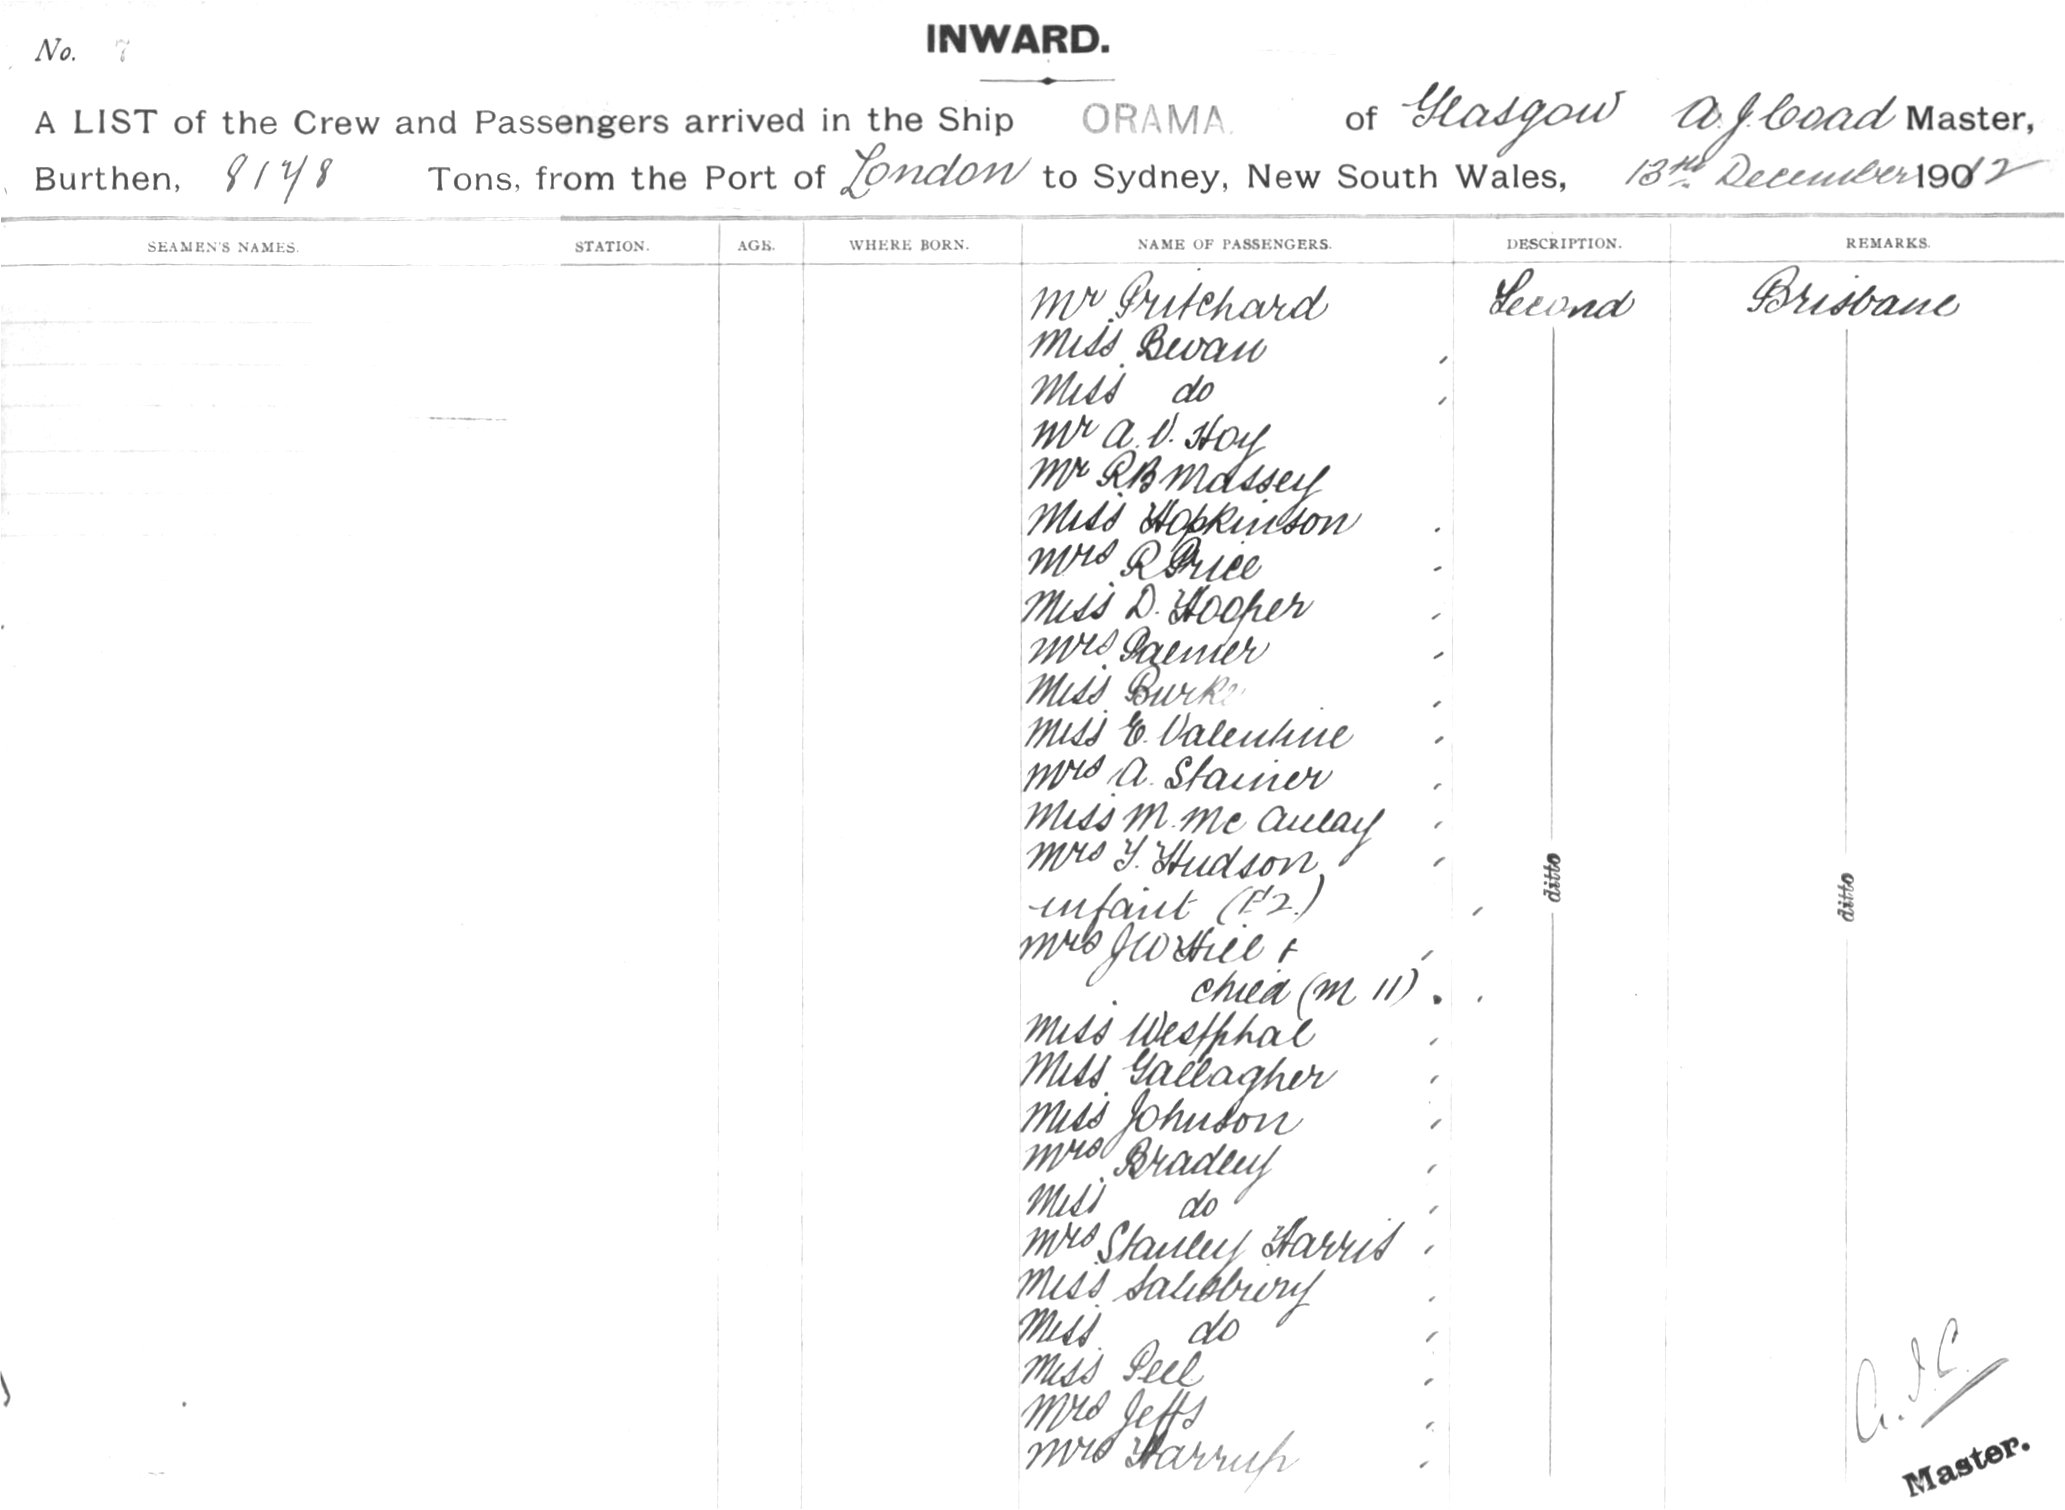 No. 7
INWARD.
A LIST of the Crew and Passengers arrived in the Ship ORAMA. of Glasgow A. J. Coad Master,
Burthen, 8178 Tons, from the Port of London to Sydney, New South Wales, 13th December 1912
SEAMEN'S NAMES. STATION. AGE. WHERE BORN. NAME OF PASSENGERS. DESCRIPTION. REMARKS.
Mr Pritchard Second Brisbane
Miss Bevan
Miss do
Mr A. V. Hoy
Mr R B Massey
Miss Hopkinson
Mrs R Price
Miss D. Hooper
Mrs Palmer
Miss Burke
Miss E. Valentine
Mrs A. Stainer
Miss M. Mc Aulay
Mrs Y. Hudson
infant (F 2.) ditto ditto
Mrs J W Hill +
child (M 11)
Miss Westphal
Miss Gallagher
Miss Johnson
Mrs Bradley
Miss do
Mrs Stanley Harris
Miss Salisbury
Miss do
Miss Peel
Mrs Jeffs
Mrs Harrup
A. J. C.
Master.